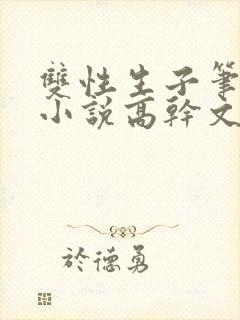 雙性生子筆
小說高幹文
於德勇